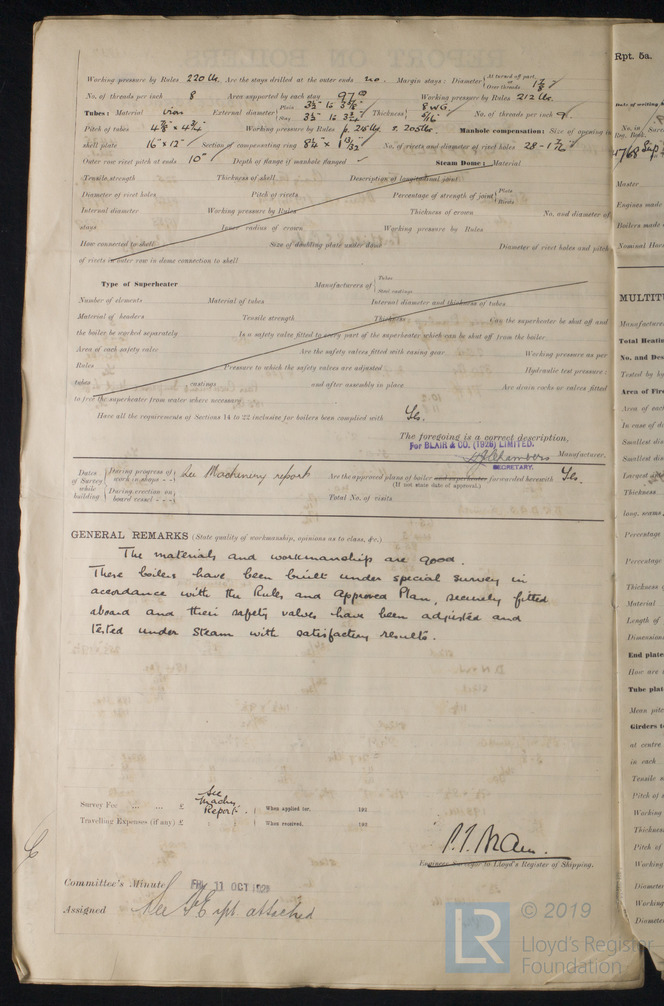 Working pressure by Rules 220 lb. Are the stays drilled at the outer ends no. Margin stays: Diameter { At turned off part, or Over threads 1 7/8"
No. of threads per inch 8 Area supported by each stay 97 Working pressure by Rules 212 lbs.
Tubes: Material iron External diameter { Plain Stay Thickness { 8 WG 5/16" No. of threads per inch 9
Pitch of tubes Working pressure by Rules Manhole compensation: Size of opening in
shell plate 16" x 12" Section of compensating ring No. of rivets and diameter of rivet holes
Outer row rivet pitch at ends 10" Depth of flange if manhole flanged Steam Dome: Material
Tensile strength Thickness of shell Description of longitudinal joint
Diameter of rivet holes Pitch of rivets Percentage of strength of joint { Plate Rivets
Internal diameter Working pressure by Rules Thickness of crown No. and diameter of
stays Inner radius of crown Working pressure by Rules
How connected to shell Size of doubling plate under dome Diameter of rivet holes and pitch
of rivets in outer row in dome connection to shell
Type of Superheater Manufacturers of { Tubes Steel castings
Number of elements Material of tubes Internal diameter and thickness of tubes
Material of headers Tensile strength Thickness Can the superheater be shut off and
the boiler be worked separately Is a safety valve fitted to every part of the superheater which can be shut off from the boiler
Area of each safety valve Are the safety valves fitted with easing gear Working pressure as per
Rules Pressure to which the safety valves are adjusted Hydraulic test pressure:
tubes castings and after assembly in place Are drain cocks or valves fitted
to free the superheater from water where necessary
Have all the requirements of Sections 14 to 22 inclusive for boilers been complied with Yes.
The foregoing is a correct description,
For BLAIR & CO. (1926) LIMITED.
Chambers Manufacturer.
SECRETARY.
Dates of Survey while building { During progress of work in shops - - } See Machinery report Are the approved plans of boiler and superheater forwarded herewith Yes.
(If not state date of approval.)
{ During erection on board vessel - - - } Total No. of visits
GENERAL REMARKS (State quality of workmanship, opinions as to class, &c.)
The materials and workmanship are good.
These boilers have been built under special survey in
accordance with the Rules and Approved Plan, securely fitted
aboard and their safety valves have been adjusted and
tested under steam with satisfactory results.
Survey Fee ... ... £ See Machy Report. When applied for, 192
Travelling Expenses (if any) £ When received, 192
Engineer Surveyor to Lloyd's Register of Shipping.
Committee's Minute FRI. 11 OCT 1929
Assigned See F.E. rpt attached
Rpt. 5a.
Date of writing
No. in
Reg. Book.
Master
Engines made
Boilers made
Nominal Hor
MULTIT
Manufactur
Total Heati
No. and Des
Tested by
Area of Fire
Area of each
In case of d
Smallest dis
Smallest dis
Largest
Thickness
long. seams
Percentage
Percentage
Thickness of
Material
Length of
Dimensions
End plate
How are
Tube plat
Mean pitc
Girders t
at centre
in each
Tensile s
Pitch of
Working
Thickness
Pitch of
Working
Diameter
Working
Diamete
LR
© 2019
Lloyd's Register
Foundation